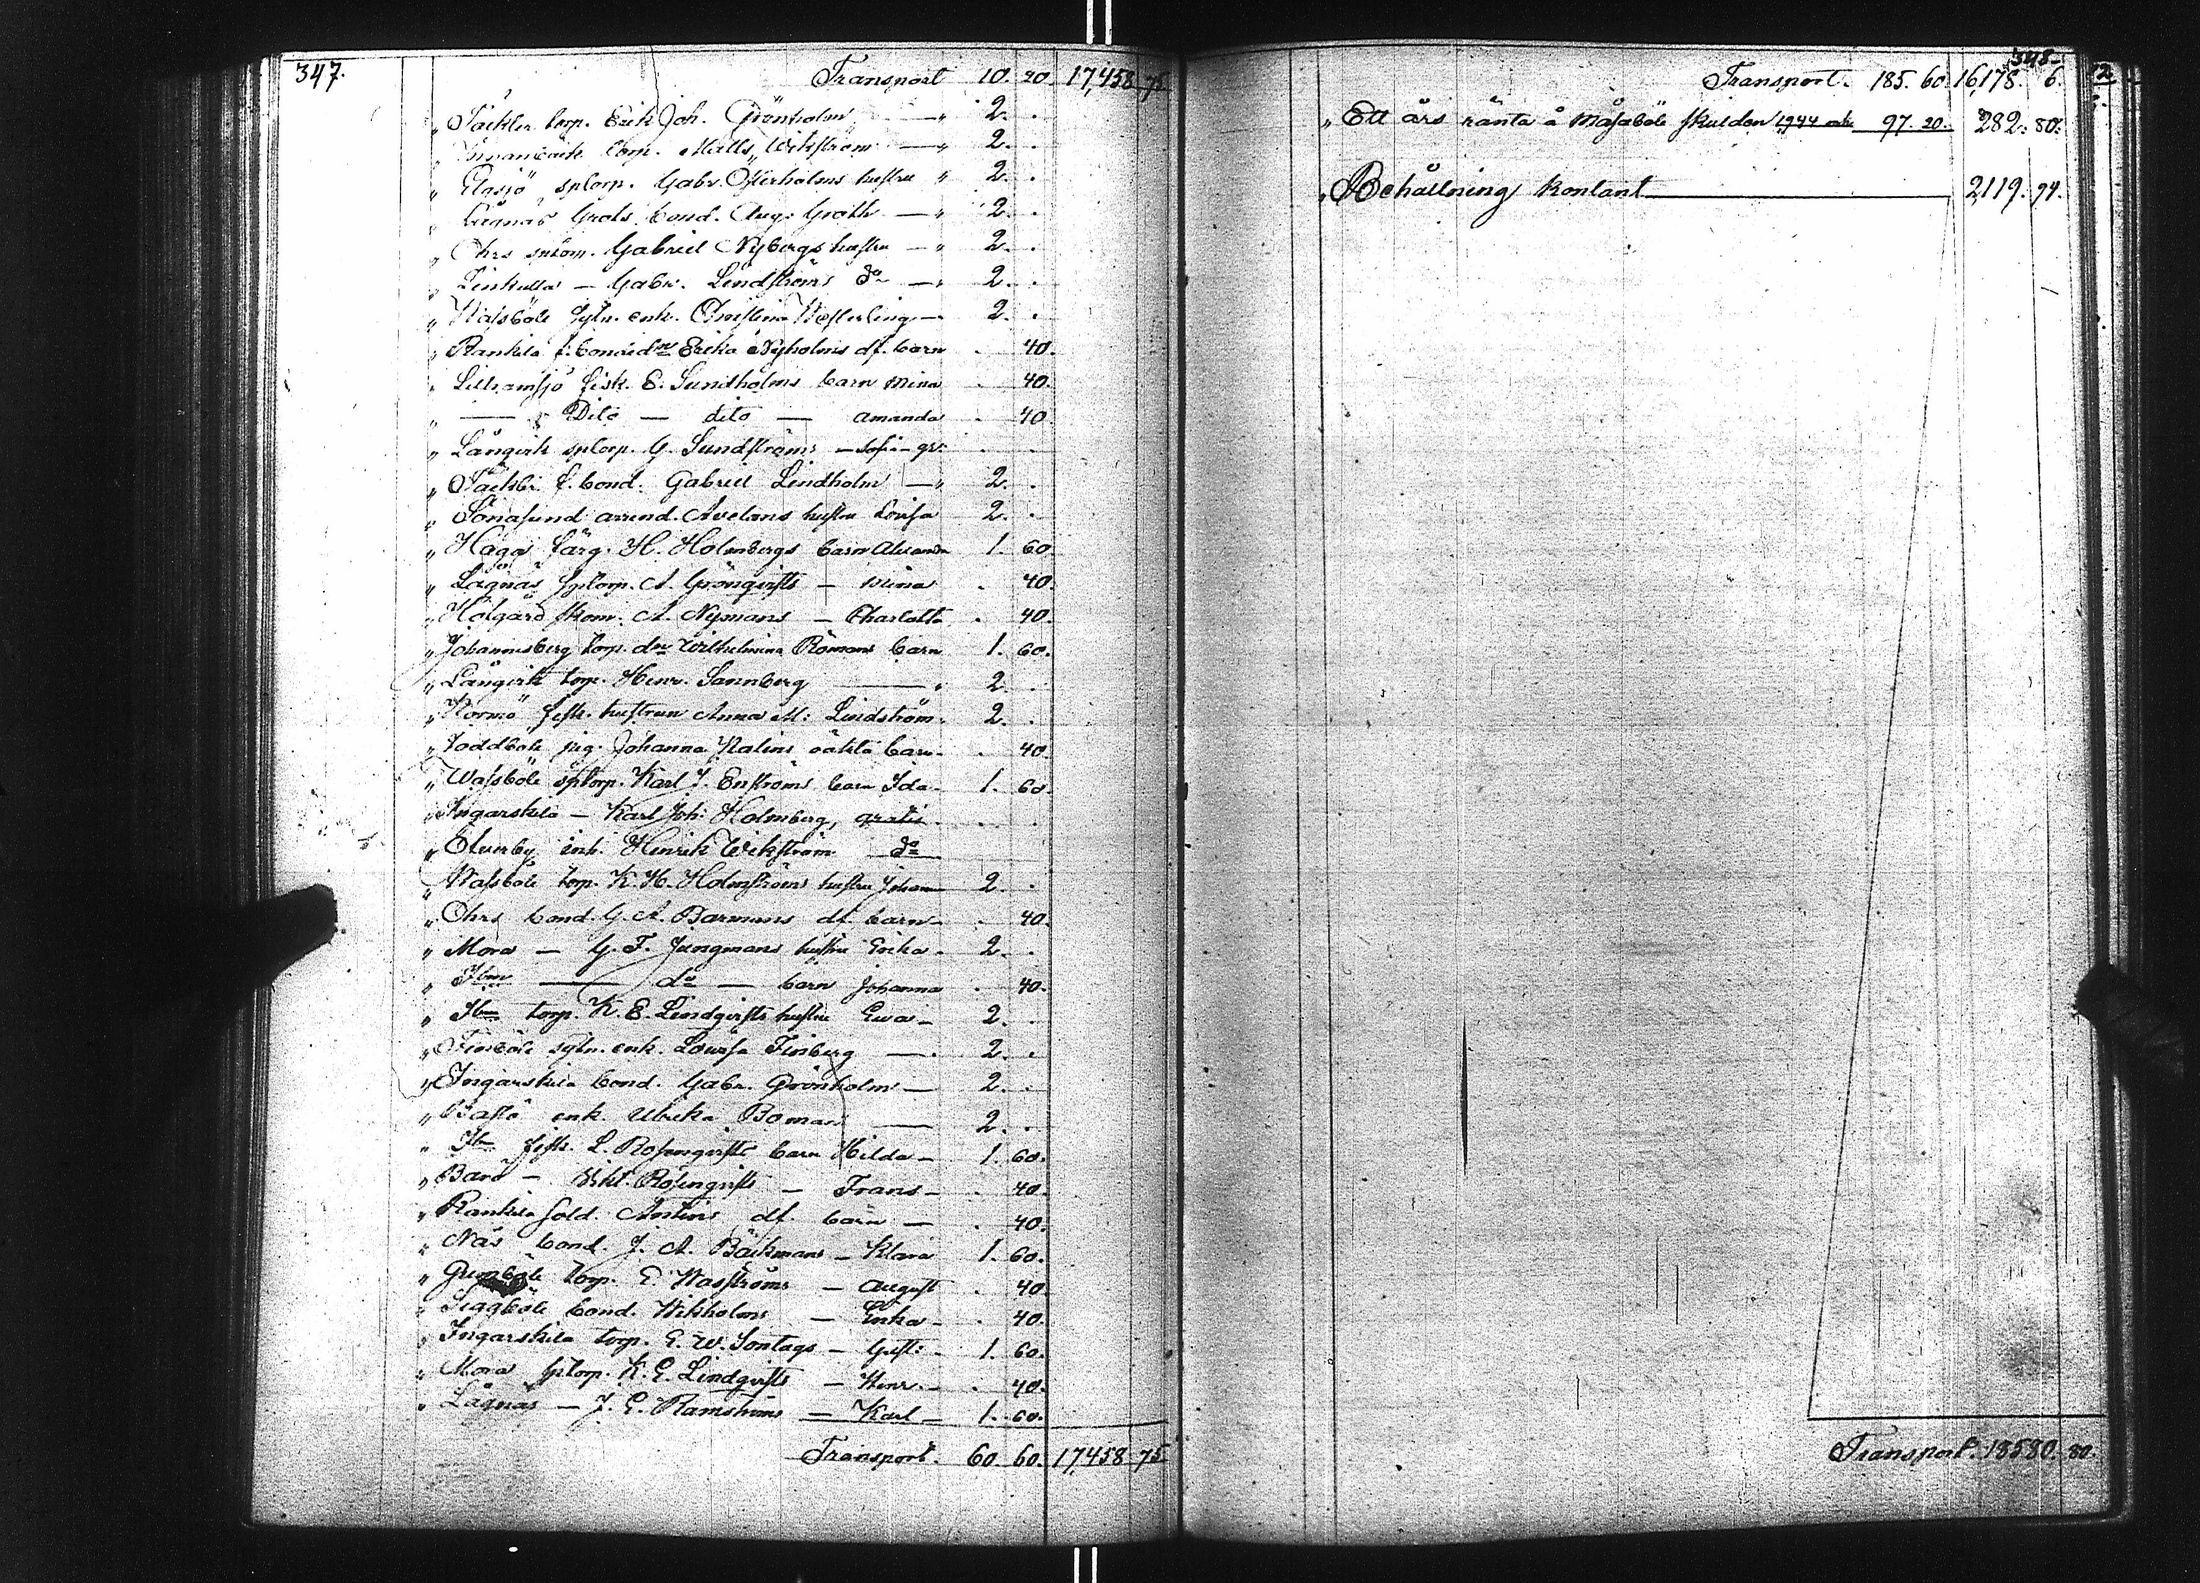 347. Transport 10. 20. 17,458 75
„ Täckter torp. Erik Joh. Grönholm — „ 2. .
„ torp. Matts Wikström — „ 2. .
„ Elgsjö sptorp. Gabr. Österholms hustru „ 2. .
„ Lågnäs Grols bond. Aug. Groth — „ 2. .
„ Ohrs sptorp. Gabriel Nybergs hustru — „ 2. .
„ Linkulla — Gabr. Lindströms do — „ 2. .
„ Wassböle sytn. enk. Christina Westerling — 2. .
„ Rankila f. bonded:r Erika Nyholms df. barn . 40.
„ Lillramsjö fisk. E. Sundholms barn Mina . 40.
„ — Dito — dito — Amanda . 40
„ Långvik sptorp. G. Sundströms — Sofia — gr. . .
„ Täckter f. bond. Gabriel Lindholm — „ 2. .
„ Sonasund arrend. Avelans hustru Lovisa 2. .
„ Haga färg. H. Holmbergs barn Alexandra 1. 60.
„ Lågnäs sptorp. A. Grönqvists — Mina . 40.
„ Holgård skom. A. Nymans — Charlotta . 40.
„ Johannisberg torp. d:r Wilhelmina Römans barn 1. 60.
„ Långvik torp. Henr. Sannberg — „ 2. .
„ Stormö fisk. hustrun Anna M: Lindström. 2. .
„ Joddböle pig. Johanna Malins oäkta barn . 40.
„ Wassböle sptorp. Karl J. Enströms barn Ida 1. 60.
„ Ingarskila — Karl Joh. Holmberg, gratis . .
„ Elunby inh. Henrik Wikström do
„ Wassböle torp. K. H. Holmströms hustru Johan 2. .
„ Ohrs bond. G. A. Barmans df. barn . 40.
„ Mora — G. F. Jungmans hustru Erika 2. .
„ Ibm — do — barn Johanna . 40.
„ Ibm torp. K. E. Lindqvists hustru Ewa 2. .
„ Finböle sytn. enk. Lovisa Finberg — 2. .
„ Ingarskila bond. Gabr. Grönholm — 2. .
„ Bastö enk. Ulrika Boman — 2. .
„ Ibm fisk. L. Rosenqvists barn Hilda 1. 60.
„ Barö — Vikt. Rosenqvists — Frans . 40.
„ Rankila sold. Antins df. barn . 40.
„ Näs bond. J. A. Bäckmans — Klara 1. 60.
„ torp. E. Wasströms — August . 40.
„ Siggböle bond. Wikholms — Erika . 40.
„ Ingarskila torp. E. W. Sontags — Gust: 1. 60.
„ Mora sptorp. K. E. Lindqvists — Henr. . 40.
„ Lågnäs — J. E. Ramströms — Karl 1. 60.
Transport. 60. 60. 17,458 75
348.
Transport. 185. 60. 16,178. 6.
„ Ett års ränta å Måsaböle skulden 1944 mk 97. 20. 282. 80.
„ Behållning kontant 2,119. 94.
Transport. 18580. 80.